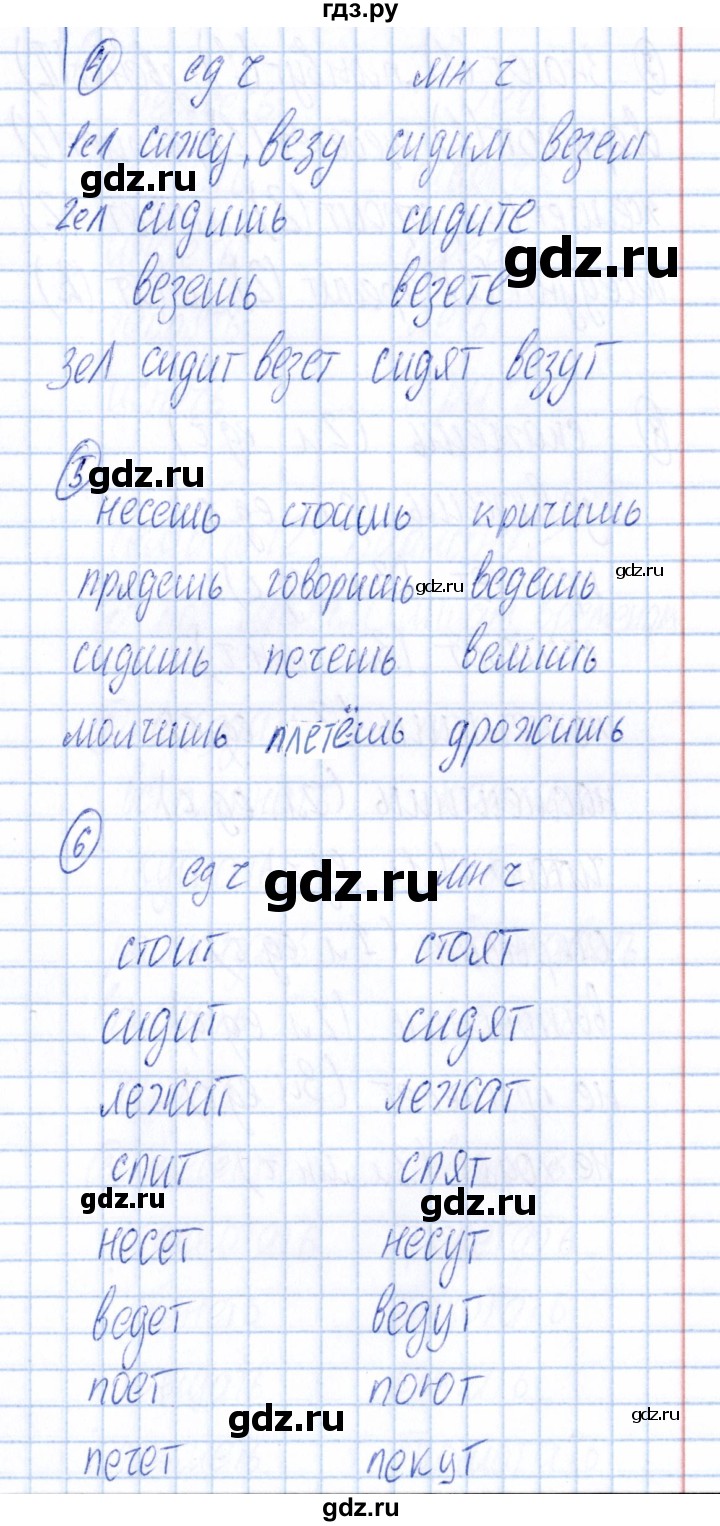 гдз.ру
4 ед ч мн ч
1ел сижу, везу сидим везем
gdz.ru
2ел сидишь сидите
gdz.ru
везешь везете
3ел сидит везет сидят везут
5 gdz.ru
несешь стоишь кричишь
прядешь говоришь gdz.ru ведешь gdz.ru
сидишь печешь велишь
молчишь плетёшь дрожишь
6
ед ч gdz.ru мн ч
стоит стоят
сидит сидят
лежит лежат
спит спят
gdz.ru gdz.ru
несет несут
ведет ведут
поет поют
gdz.ru gdz.ru
печет пекут
gdz.ru